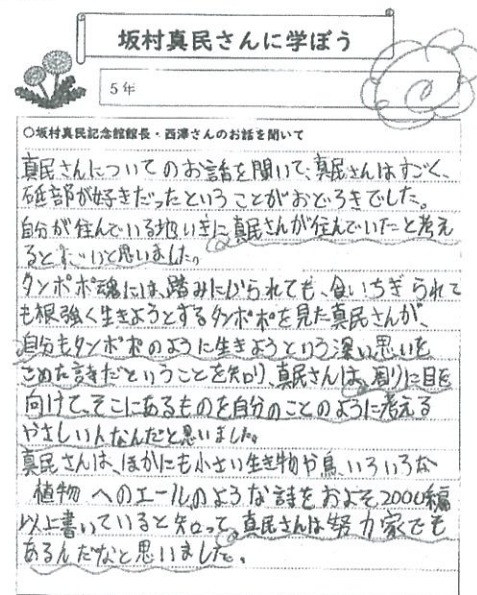 坂村真民さんに学ぼう
5年
○坂村真民記念館館長・西澤さんのお話を聞いて
真民さんについてのお話を聞いて、真民さんはすごく、
砥部が好きだったということがおどろきでした。
自分が住んでいる地いきに真民さんが住んでいたと考え
るとすごいと思いました。
タンポポ魂には、踏みにじられても、食いちぎられて
も根強く生きようとするタンポポを見た真民さんが、
自分もタンポポのように生きようという深い思いを
こめた詩だということを知り、真民さんは、周りに目を
向けて、そこにあるものを自分のことのように考える
やさしい人なんだと思いました。
真民さんは、ほかにも小さい生き物や鳥、いろいろな
植物へのエールのような詩をおよそ2000編
以上書いていると知って、真民さんは努力家でも
あるんだなと思いました。